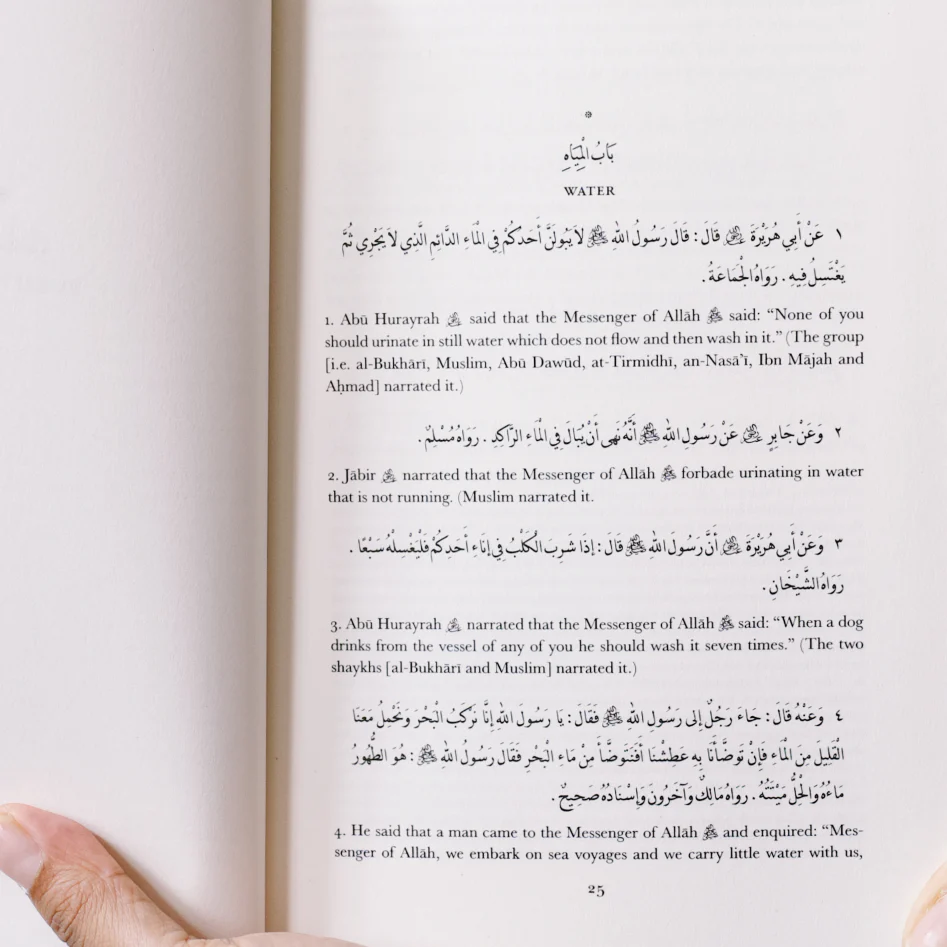 بَابُ الْمِيَاهِ
WATER
١ عَنْ أَبِي هُرَيْرَةَ ؓ قَالَ: قَالَ رَسُولُ اللهِ ﷺ لاَ يَبُولَنَّ أَحَدُكُمْ فِي الْمَاءِ الدَّائِمِ الَّذِي لاَ يَجْرِي ثُمَّ
يَغْتَسِلُ فِيهِ. رَوَاهُ الْجَمَاعَةُ.
1. Abū Hurayrah ؓ said that the Messenger of Allāh ﷺ said: “None of you
should urinate in still water which does not flow and then wash in it.” (The group
[i.e. al-Bukhārī, Muslim, Abū Dawūd, at-Tirmidhī, an-Nasā’ī, Ibn Mājah and
Aḥmad] narrated it.)
٢ وَعَنْ جَابِرٍ ؓ عَنْ رَسُولِ اللهِ ﷺ أَنَّهُ نَهَى أَنْ يُبَالَ فِي الْمَاءِ الرَّاكِدِ. رَوَاهُ مُسْلِمٌ.
2. Jābir ؓ narrated that the Messenger of Allāh ﷺ forbade urinating in water
that is not running. (Muslim narrated it.
٣ وَعَنْ أَبِي هُرَيْرَةَ ؓ أَنَّ رَسُولَ اللهِ ﷺ قَالَ: إِذَا شَرِبَ الْكَلْبُ فِي إِنَاءِ أَحَدِكُمْ فَلْيَغْسِلْهُ سَبْعًا.
رَوَاهُ الشَّيْخَانِ.
3. Abū Hurayrah ؓ narrated that the Messenger of Allāh ﷺ said: “When a dog
drinks from the vessel of any of you he should wash it seven times.” (The two
shaykhs [al-Bukhārī and Muslim] narrated it.)
٤ وَعَنْهُ قَالَ: جَاءَ رَجُلٌ إِلَى رَسُولِ اللهِ ﷺ فَقَالَ: يَا رَسُولَ اللهِ إِنَّا نَرْكَبُ الْبَحْرَ وَنَحْمِلُ مَعَنَا
الْقَلِيلَ مِنَ الْمَاءِ فَإِنْ تَوَضَّأْنَا بِهِ عَطِشْنَا أَفَنَتَوَضَّأُ مِنْ مَاءِ الْبَحْرِ فَقَالَ رَسُولُ اللهِ ﷺ: هُوَ الطَّهُورُ
مَاءُهُ وَالْحِلُّ مَيْتَتُهُ. رَوَاهُ مَالِكٌ وَآخَرُونَ وَإِسْنَادُهُ صَحِيحٌ.
4. He said that a man came to the Messenger of Allāh ﷺ and enquired: “Mes-
senger of Allāh, we embark on sea voyages and we carry little water with us,
25